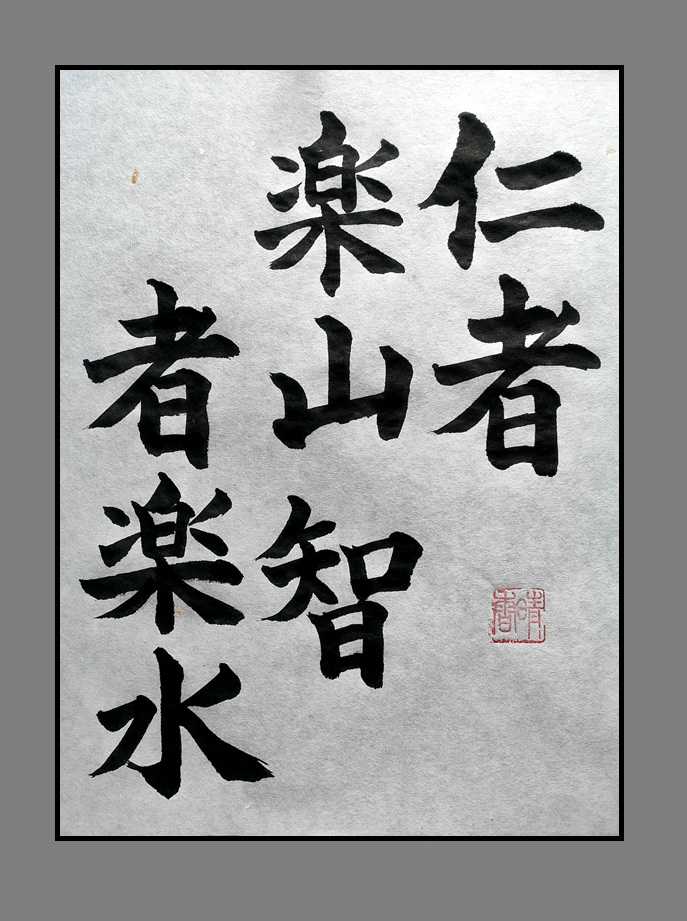 仁者
楽山智
者楽水